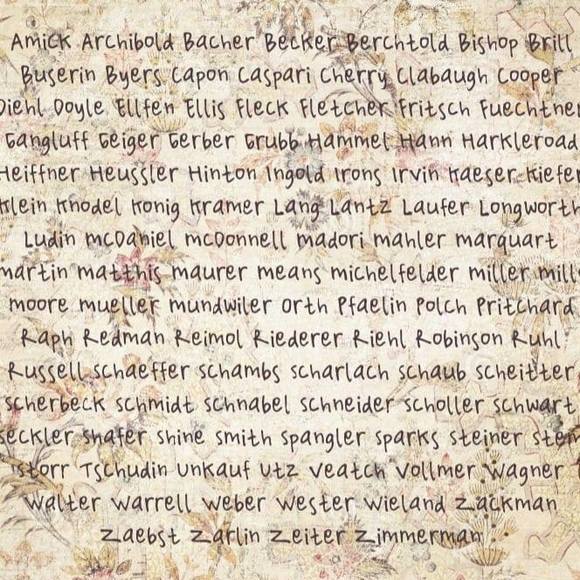 Amick Archibold Bacher Becker Berchtold Bishop Brill
Buserin Byers Capon Caspari Cherry Clabaugh Cooper
Diehl Doyle Ellfen Ellis Fleck Fletcher Fritsch Fuechtne
Gangluff Geiger Gerber Grubb Hammel Hann Harkleroad
Heiffner Heussler Hinton Ingold Irons Irvin Kaeser Kiefer
Klein Knodel Konig Kramer Lang Lantz Laufer Longworth
Ludin McDaniel McDonnell Madori Mahler Marquart
Martin Matthis Maurer Means Michelfelder Miller Mill
Moore Mueller Mundwiler Orth Pfaelin Polch Pritchard
Raph Redman Reimol Riederer Riehl Robinson Ruhl
Russell Schaeffer Schambs Scharlach Schaub Scheitter
Scherbeck Schmidt Schnabel Schneider Scholler Schwart
Seckler Shafer Shine Smith Spangler Sparks Steiner
Storr Tschudin Unkauf Utz Veatch Vollmer Wagner
Walter Warrell Weber Wester Wieland Zackman
Zaebst Zarlin Zeiter Zimmerman